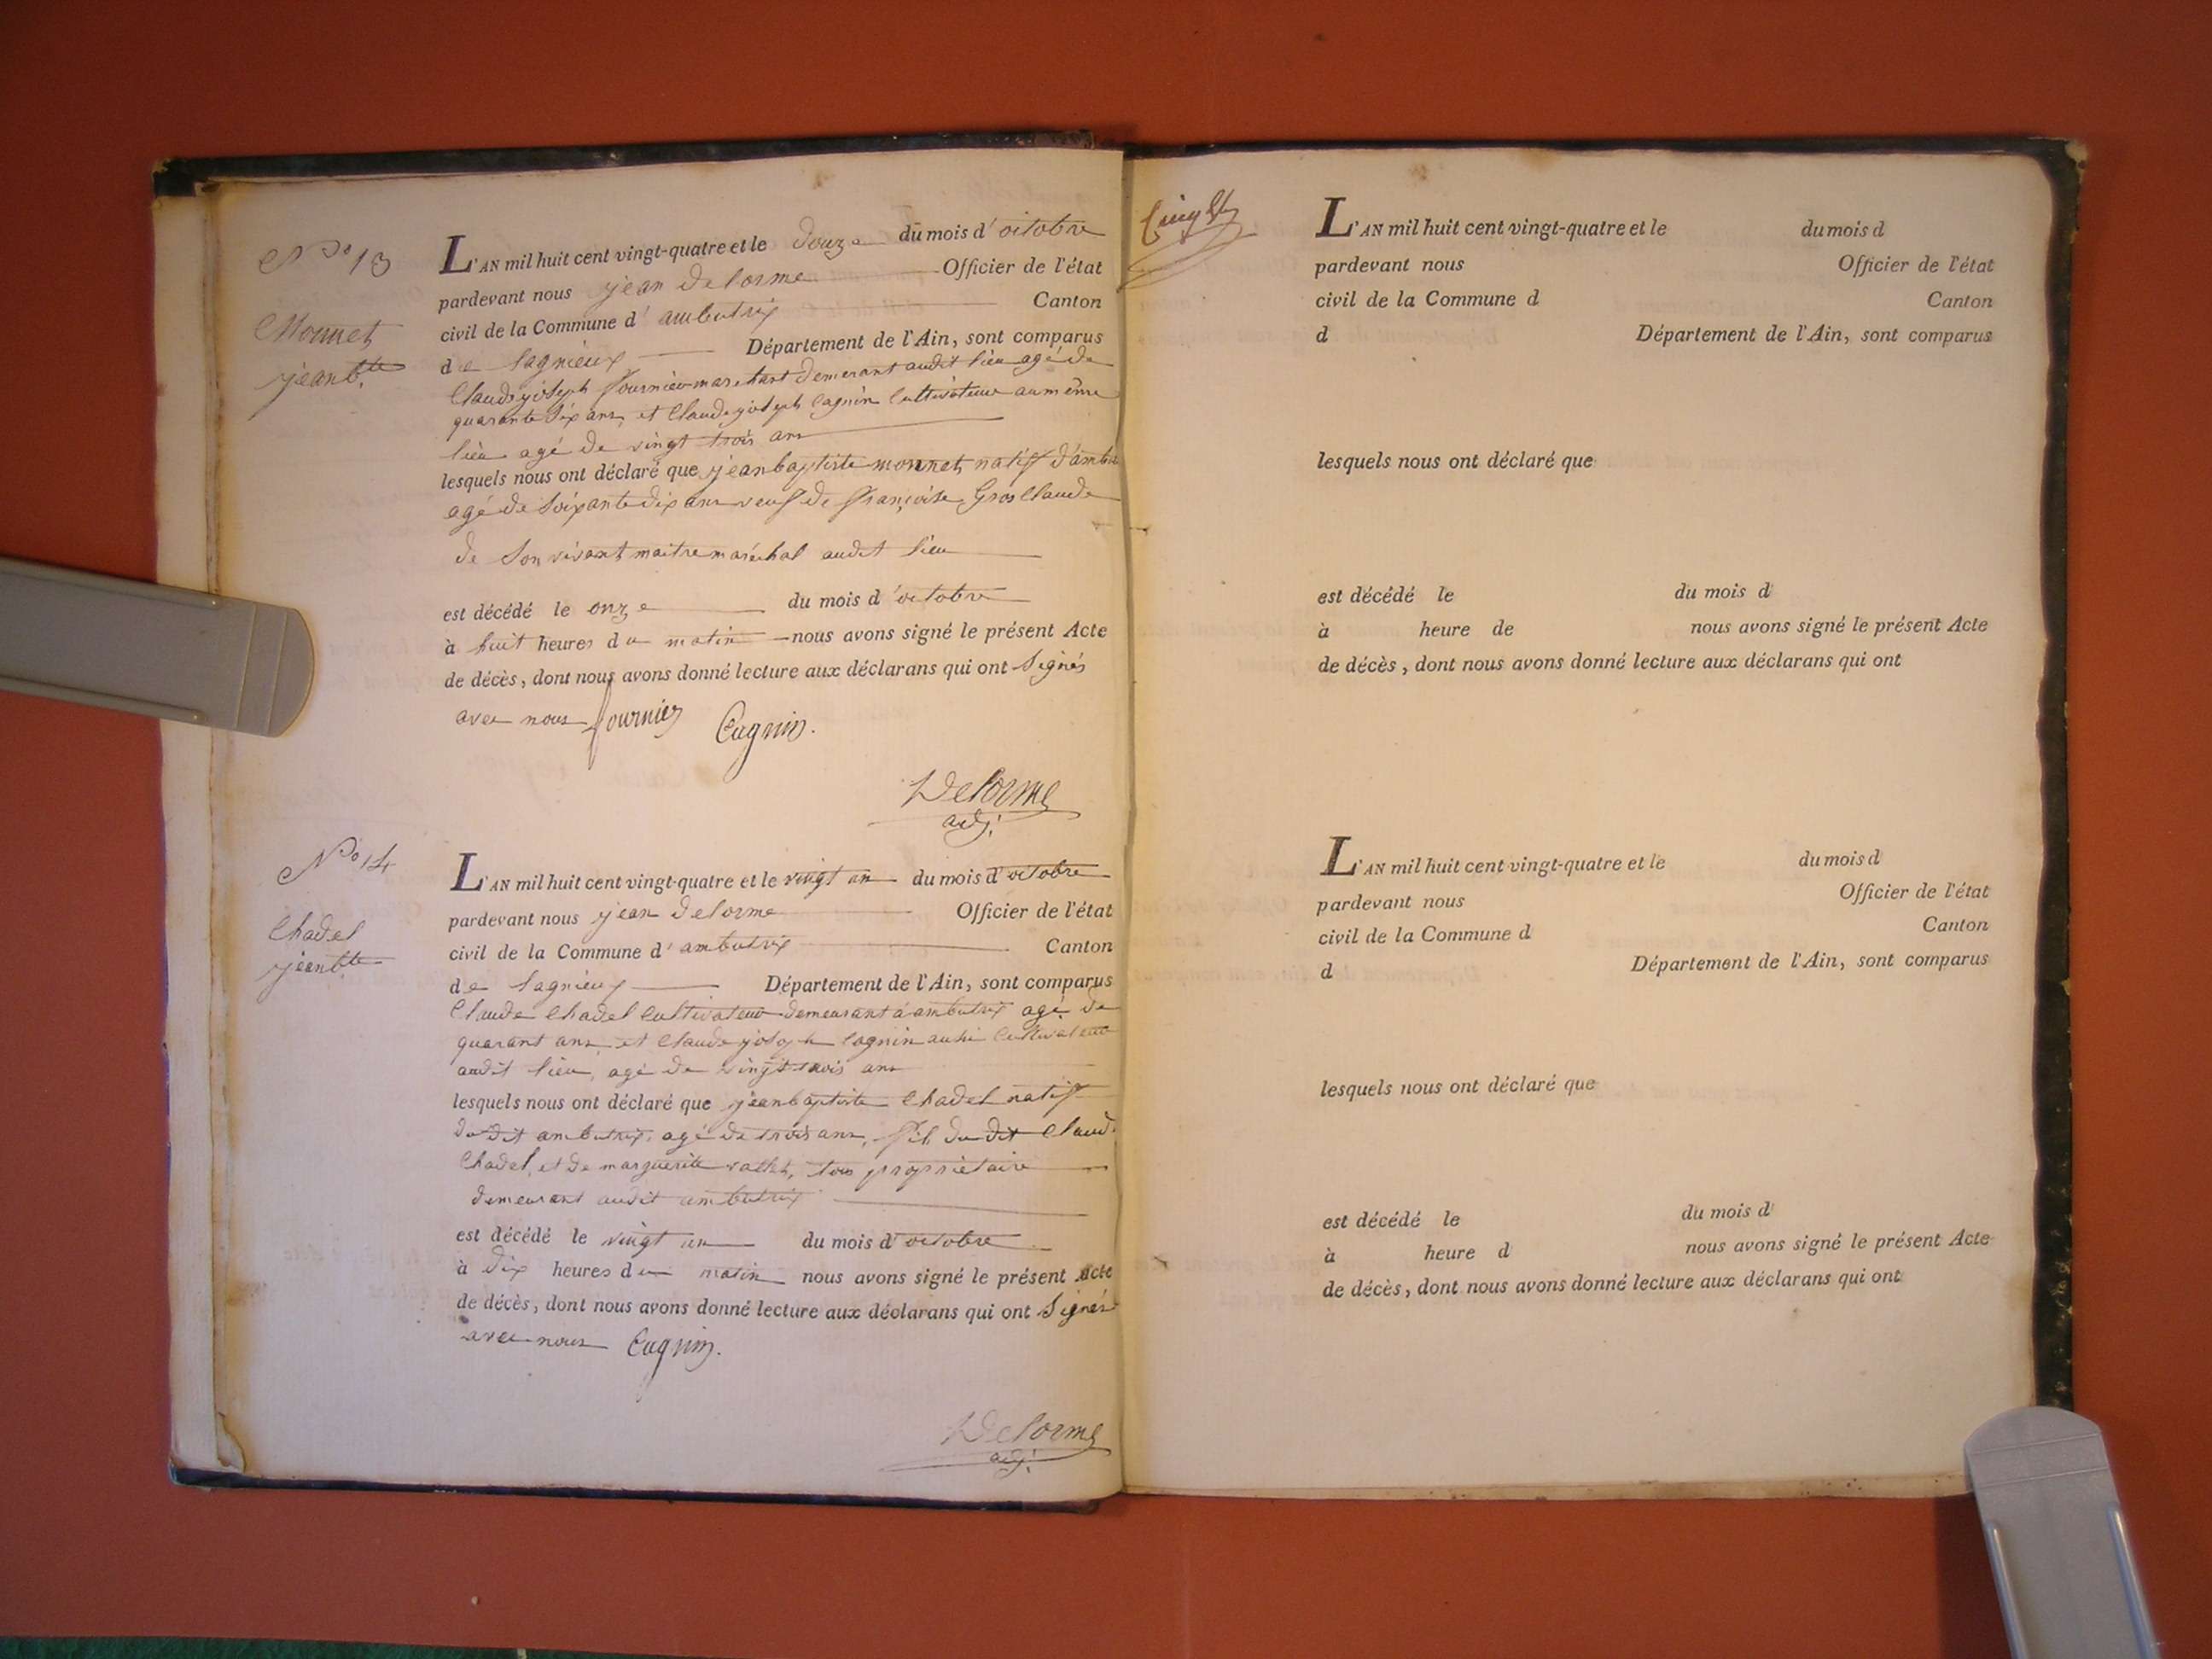 N.o 13
Monnet
jean bte
L'AN mil huit cent vingt-quatre et le douze du mois d'octobre
pardevant nous jean Delorme Officier de l'état
civil de la Commune d'ambutrix Canton
de Lagnieux Département de l'Ain, sont comparus
Claude joseph fournier marchant demerant audit lieu agé de
quarante six ans, et Claude joseph Cagnin Cultivateur au même
lieu agé de vingt trois ans
lesquels nous ont déclaré que jean baptiste monnet natif d'ambut
agé de soixante dix ans veuf de françoise Gros Claude
de son vivant maitre maréchal audit lieu
est décédé le onze du mois d'octobre
à huit heures du matin nous avons signé le présent Acte
de décès, dont nous avons donné lecture aux déclarans qui ont Signés
avec nous fournier Cagnin.
Delorme
adj.
N.o 14
Chadel
jean bte
L'AN mil huit cent vingt-quatre et le vingt un du mois d'octobre
pardevant nous jean delorme Officier de l'état
civil de la Commune d'ambutrix Canton
de Lagnieux Département de l'Ain, sont comparus
Claude Chadel Cultivateur demeurant à ambutrix agé de
quarant ans, et Claude joseph Cagnin aussi Cultivateur
audit lieu, agé de vingt trois ans
lesquels nous ont déclaré que jean baptiste Chadel natif
du dit ambutrix, agé de trois ans, fil du dit Claude
Chadel, et de marguerite vallet, tous propriétaire
demeurant audit ambutrix
est décédé le vingt un du mois d'octobre
à dix heures du matin nous avons signé le présent Acte
de décès, dont nous avons donné lecture aux déclarans qui ont Signés
avec nous Cagnin.
Delorme
adj.
L'AN mil huit cent vingt-quatre et le du mois d
pardevant nous Officier de l'état
civil de la Commune d Canton
d Département de l'Ain, sont comparus
lesquels nous ont déclaré que
est décédé le du mois d
à heure de nous avons signé le présent Acte
de décès, dont nous avons donné lecture aux déclarans qui ont
L'AN mil huit cent vingt-quatre et le du mois d
pardevant nous Officier de l'état
civil de la Commune d Canton
d Département de l'Ain, sont comparus
lesquels nous ont déclaré que
est décédé le du mois d
à heure d nous avons signé le présent Acte
de décès, dont nous avons donné lecture aux déclarans qui ont